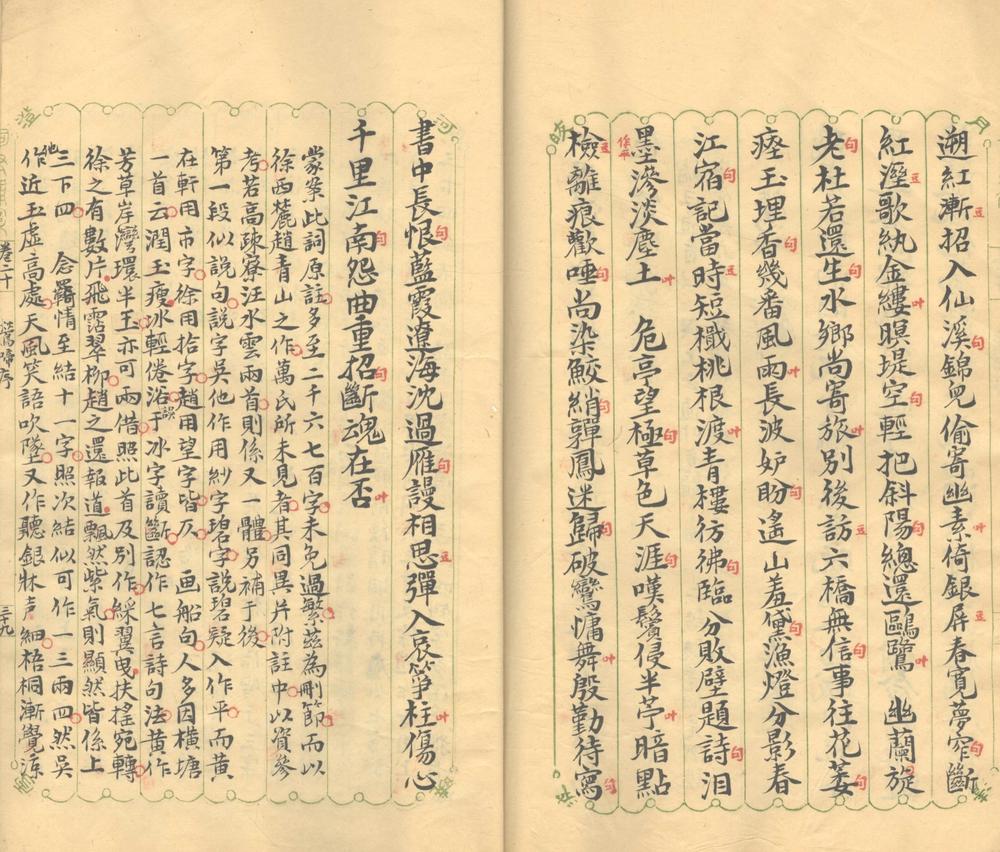 遡紅漸招入仙溪錦兒偷寄幽素倚銀屏春寬夢窄斷
紅溼歌紈金縷暝堤空輕把斜陽總還鷗鷺　幽蘭旋
老杜若還生水鄉尚寄旅別後訪六橋無信事往花萎
瘞玉埋香幾番風雨長波妒盼遙山羞黛漁燈分影春
江宿記當時短檝桃根渡青樓彷彿臨分敗壁題詩泪
墨滲淡塵土　危亭望極草色天涯嘆鬢侵半苧暗點
檢離痕歡唾尚染鮫綃嚲鳳迷歸破鸞慵舞殷勤待寫
書中長恨藍霞遼海沈過雁謾相思彈入哀箏柱傷心
千里江南怨曲重招斷魂在否
蒙案此詞原註多至二千六七百字未免過繁茲為刪節而以
徐西麓趙青山之作萬氏所未見者其同異幷附註中以資參
考若高疎寮汪水雲兩首則係又一體另補于後
第一段似說句說字吳他作用紗字碧字說碧疑入作平而黃
在軒用市字徐用拾字趙用望字皆仄　畫船句人多因橫塘
一首云潤玉瘦冰輕倦浴誤于冰字讀斷認作七言詩句法黃作
芳草岸灣環半玉亦可兩借照此首及別作綵翼曳扶搖宛轉
徐之有數片飛霑翠柳趙之還報道飄然紫氣則顯然皆係上
三下四　念羈情至結十一字照次結似可作一三兩四然吳
他作近玉虛高處天風笑語吹墜又作聽銀牀声細梧桐漸覺涼
卷二十
鶯啼序
三九
句
豆
叶
作平